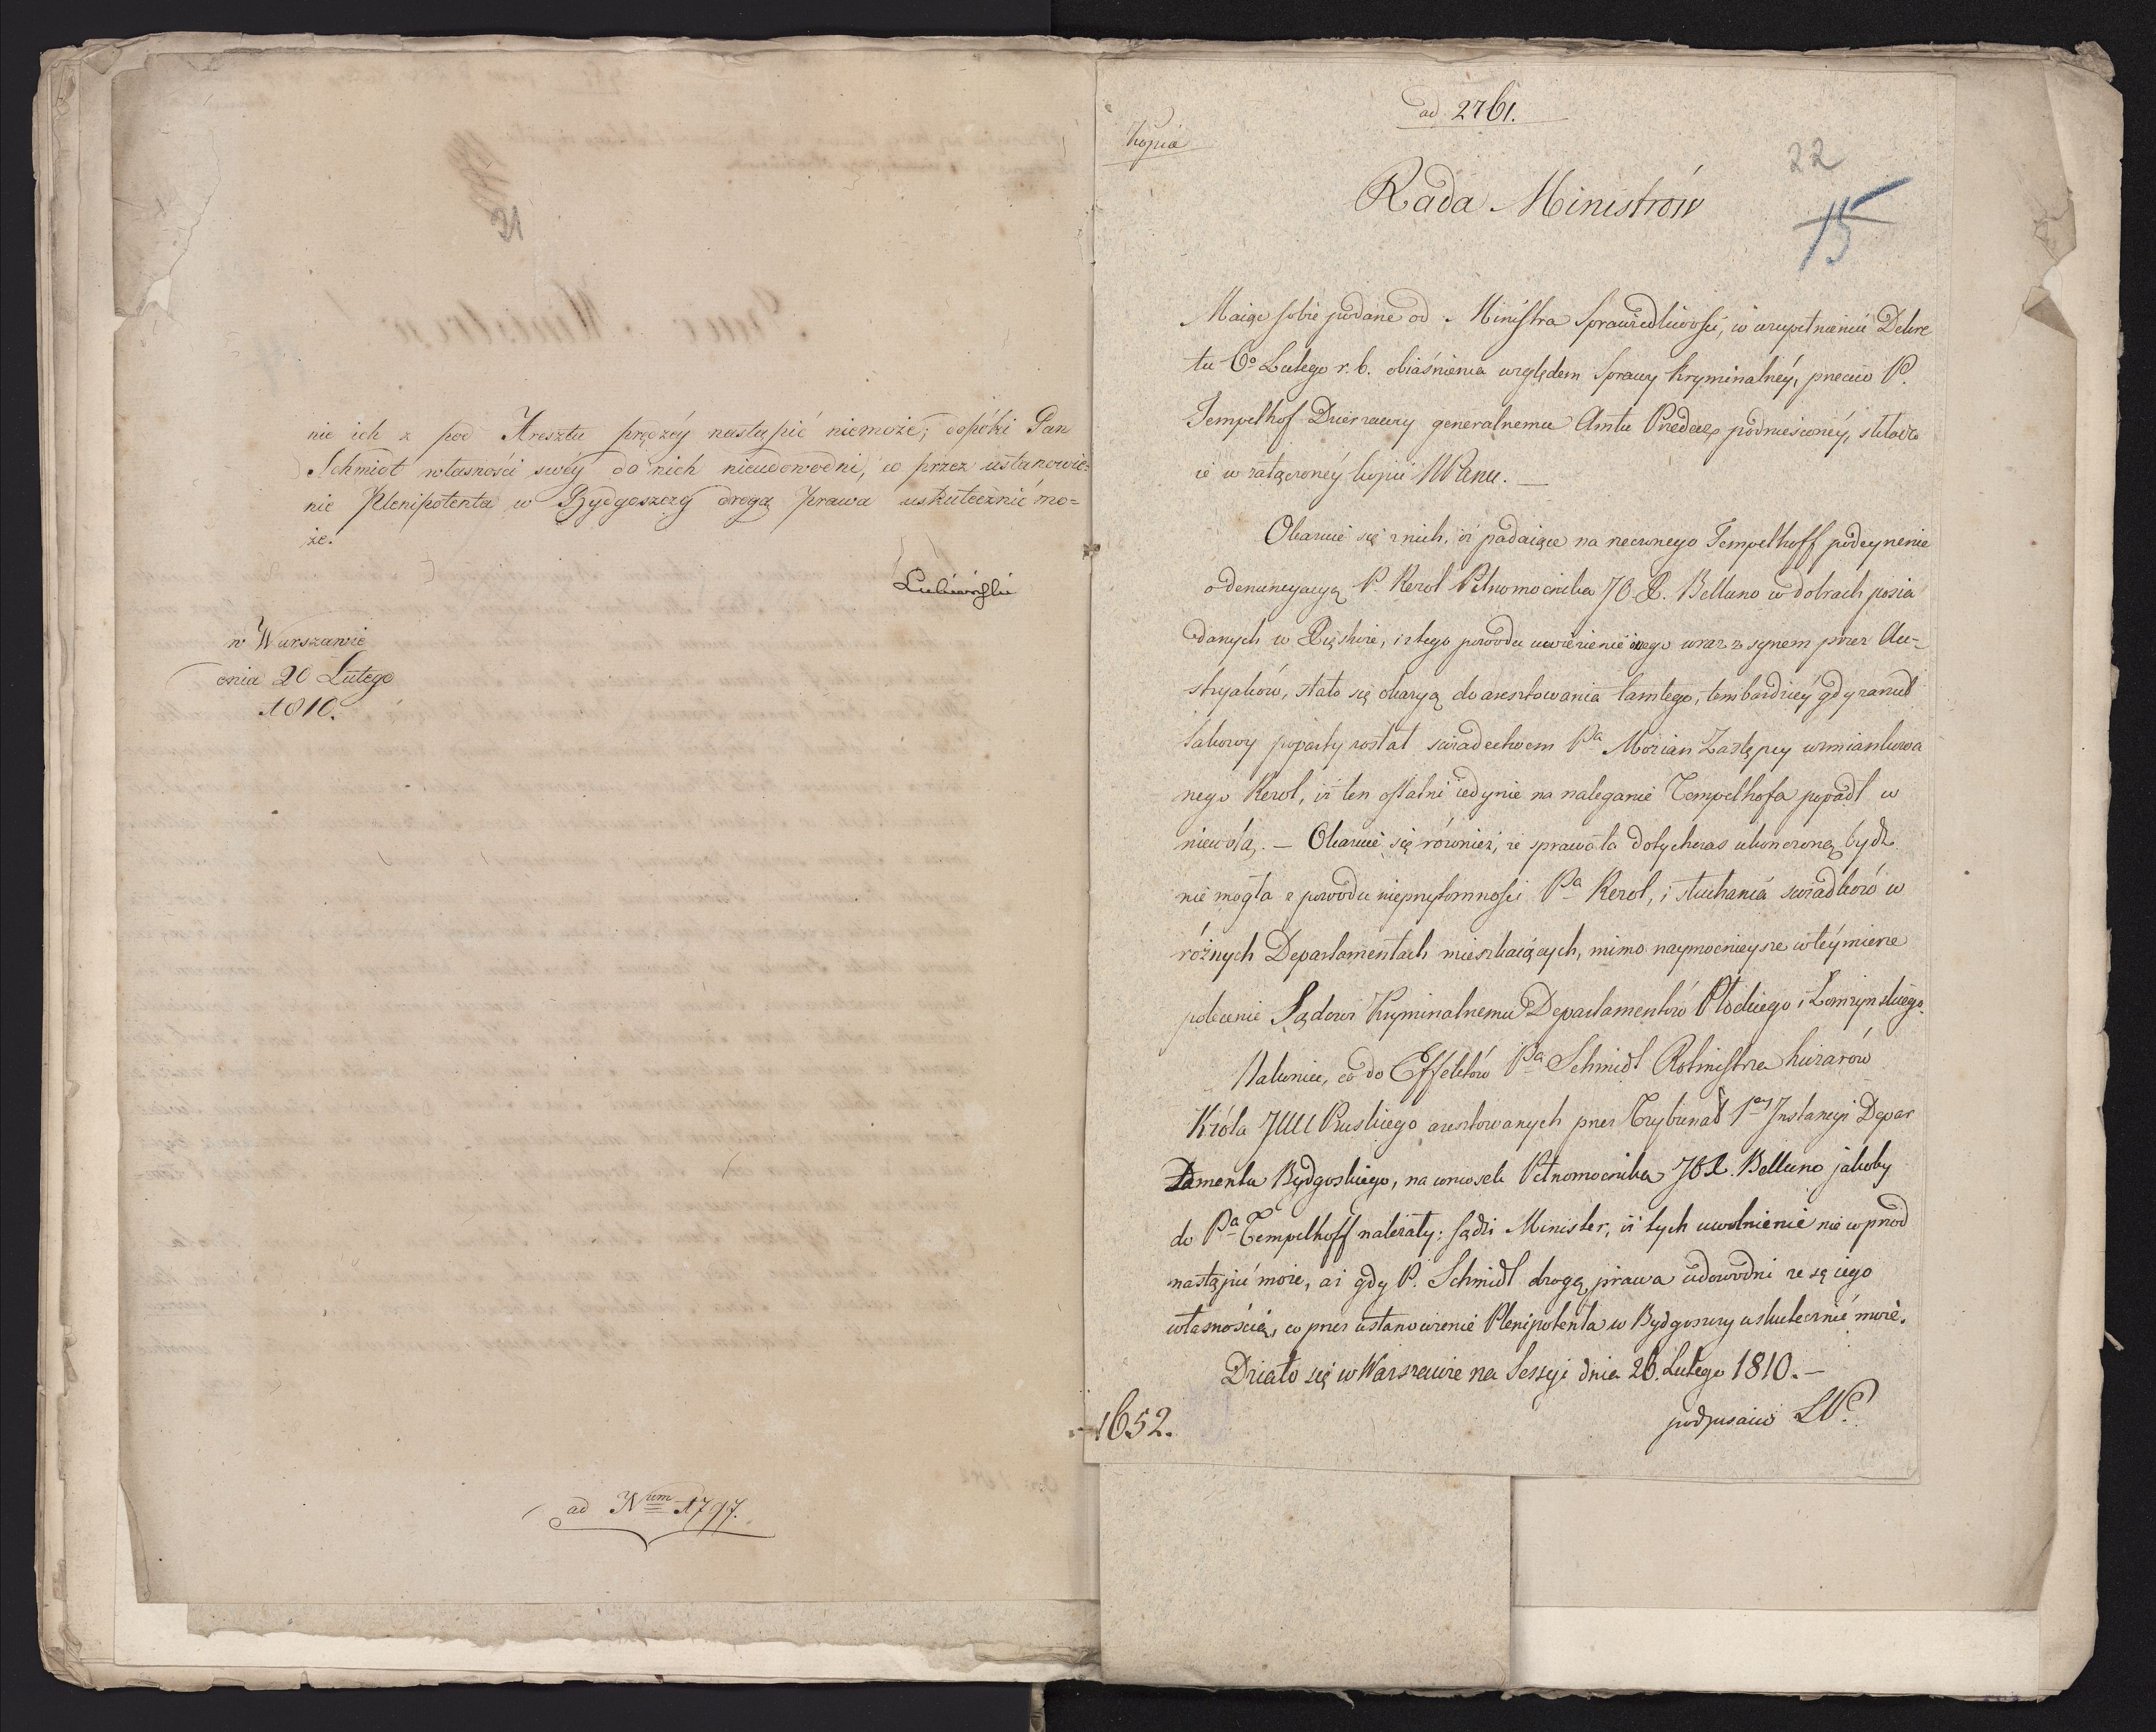 21
nie ich z pod Aresztu prędzéy nastąpić niemoże; dopóki Pan
Schmidt własności swéy do nich nieudowodni, co przez ustanowie-
nie Plenipotenta w Bydgoszczy drogą prawa uskutecznić mo=
że.
Łubieński
w Warszawie
dnia 20 Lutego
1810.
ad Num 1797.
ad 2761.
Kopia
22
15
Rada Ministrów
Maiąc sobie podane od Ministra Sprawiedliwości, w uzupełnieniu Dekre
tu 6o Lutego r. b. obiaśnienia względem Sprawy kryminalnéy, przeciw P.
Tempelhof Dzierzawcy generalnemu Amtu podniesionéy,
ie w załączonéy kopii WPanu. —
Okazuie się z nich, iż padaiące na rzeczonego Tempelhoff podeyrzenie
o denuncyacyą P. Kerol Pełnomocnika JO X. Belluno w dobrach posia
danych w, i z tego powodu uwięzienie iego wraz z synem przez Au-
stryaków, stało się okazyą do aresztowania tamtego, tembardziéy gdy zarzut
takowy poparty został świadectwem Pa Morian Zastępcy wzmiankowa
nego Kerol, iż ten ostatni iedynie na naleganie Tempelhofa popadł w
niewolą. — Okazuie się również, że sprawa ta dotychczas ukończoną bydź
nie mogła z powodu nieprzytomności Pa Kerol, i słuchania świadków w
różnych Departamentach mieszkaiących, mimo naymocnieysze w téy mierze
polecenie Sądowi Kryminalnemu Departamentów Płockiego i Łomżynskiego.
Nakoniec, co do Effektów Pa Schmidt Rotmistrza huzarów
Króla JMci Pruskiego aresztowanych przez Trybunał 1ey Instancyi Depar
tamentu Bydgoskiego, na wniosek Pełnomocnika JO X. Belluno jakoby
do Pa Tempelhoff należały: sądzi Minister, iż tych uwolnienie nie wprzód
nastąpić może, aż gdy P. Schmidt drogą prawa udowodni że są iego
własnością, co przez ustanowienie Plenipotenta w Bydgoszczy uskutecznić może.
Działo się w Warszawie na Sessyi dnia 26. Lutego 1810. —
podpisano
1652.